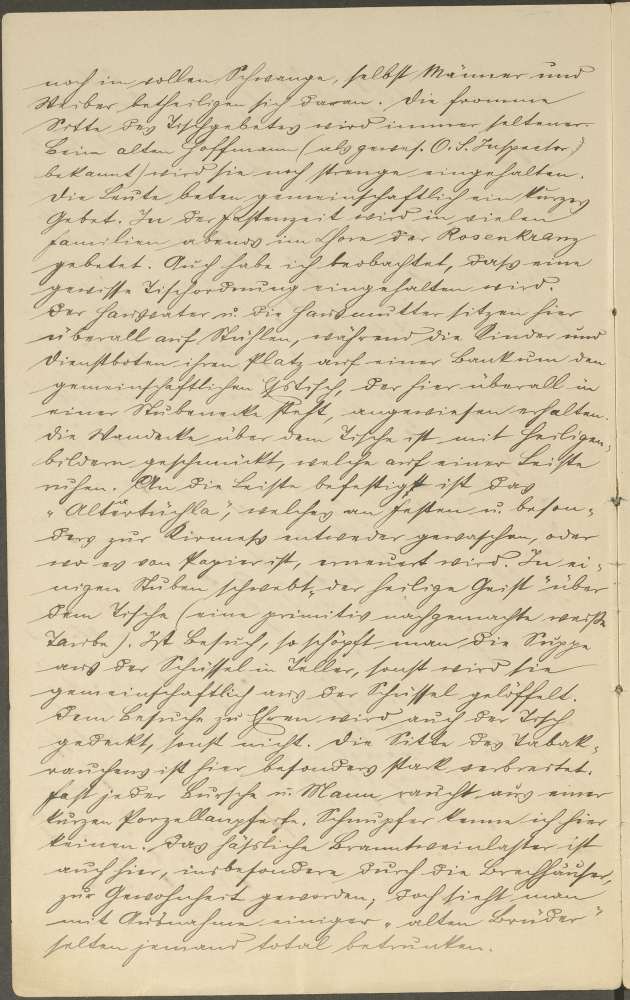 noch in vollem Schwange, selbst Männer und
Weiber betheiligen sich daran. Die fromme
Sitte des Tischgebetes wird immer seltener.
Beim alten Hoffmann (als gewes. O. S. Inspector
bekannt) wird sie noch strenge eingehalten.
Die Leute beten gemeinschaftlich ein kurzes
Gebet. In der Fastenzeit wird in vielen
Familien abends im Chore der Rosenkranz
gebetet. Auch habe ich beobachtet, dass eine
gewisse Tischordnung eingehalten wird.
Der Hausvater u. die Hausmutter sitzen hier
überall auf Stühlen, während die Kinder und
Dienstboten ihren Platz auf einer Bank um den
gemeinschaftlichen Esstisch, der hier überall in
einer Stubenecke steht, angewiesen erhalten.
Die Wandecke über dem Tische ist mit Heiligen-
bildern geschmückt, welche auf einer Leiste
ruhen. An die Leiste befestigt ist das
"Altertüchla", welches an Festen u. beson-
ders zur Kirmeß entweder gewaschen, oder
wo es von Papier ist, erneuert wird. In ei-
nigen Stuben schwebt "der heilige Geist" über
dem Tische (eine primitiv nachgemachte weiße
Taube). Ist Besuch, so schöpft man die Suppe
aus der Schüssel in Teller, sonst wird sie
gemeinschaftlich aus der Schüssel gelöffelt.
Dem Besuche zu Ehren wird auch der Tisch
gedeckt, sonst nicht. Die Sitte des Tabak-
rauchens ist hier besonders stark verbreitet.
Fast jeder Bursche u. Mann raucht aus einer
kurzen Porzellanpfeife. Schnupfer kenne ich hier
keinen. Das häßliche Branntweinlaster ist
auch hier, insbesondere durch die Brechhäuser,
zur Gewohnheit geworden; doch sieht man
mit Ausnahme einiger "alten Brüder"
selten jemand total betrunken.